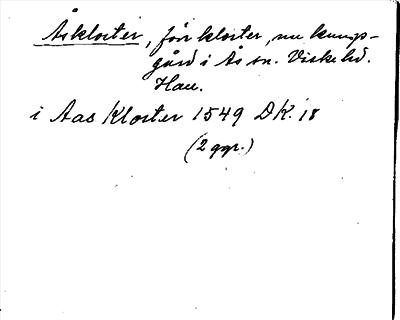 Åskloster, förr kloster, nu kungs-
gård i Ås sn. Viske hd.
Hall.
i Aas Kloster 1549 DK. 18
(2 ggr.)